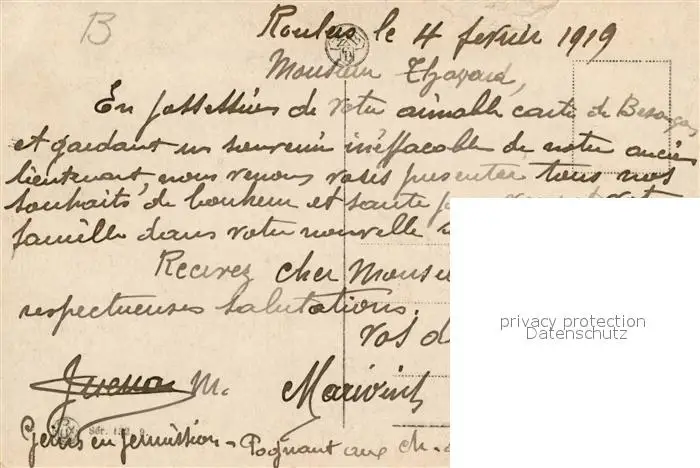 B
Roulers le 4 fevrier 1919
Monsieur Thavard,
En possession de votre aimable carte de Besançon
et gardant un souvenir inéffacable de notre ancien
lieutenant, nous venons vous presenter tous nos
souhaits de bonheur et santé
famille dans votre nouvelle
Recevez cher Monsieur
respectueuses salutations.
Vos
M. Marivint
Sér. 132
Genis en permission - Pognant aux ch.
privacy protection
Datenschutz